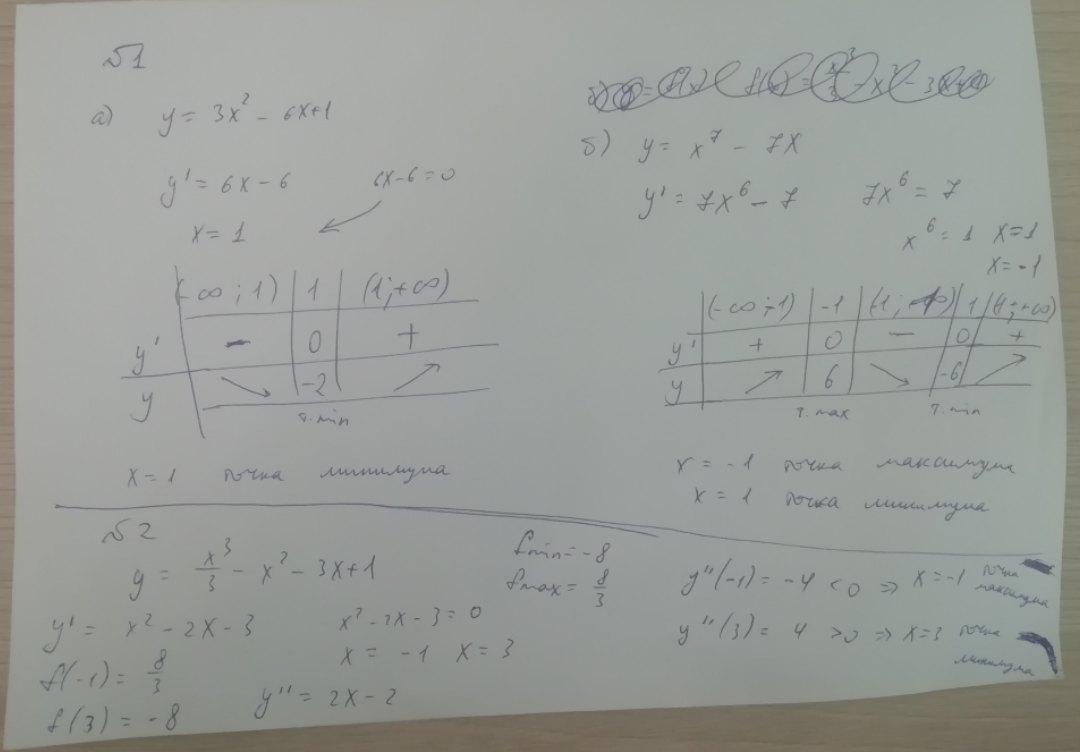 №1
а) y = 3x² - 6x+1
y' = 6x - 6 6x-6=0
x = 1
(-∞; 1) 1 (1;+∞)
y' - 0 +
y ↘ -2 ↗
т. min
x=1 точка минимума
б) y = x⁷ - 7x
y' = 7x⁶ - 7 7x⁶ = 7
x⁶ = 1 x=1
x=-1
(-∞;-1) -1 (1; 1 (1;+∞)
y' + 0 - 0 +
y ↗ 6 ↘ -6 ↗
т. max т. min
x = -1 точка максимума
x = 1 точка минимума
№2
y = x³/3 - x² - 3x+1
y' = x² - 2x - 3 x² - 2x - 3 = 0
x = -1 x = 3
f(-1) = 8/3
f(3) = -8 y'' = 2x - 2
fmin = -8
fmax = 8/3
y''(-1) = -4 < 0 => x=-1 точка
максимума
y''(3) = 4 >0 => x=3 точка
минимума